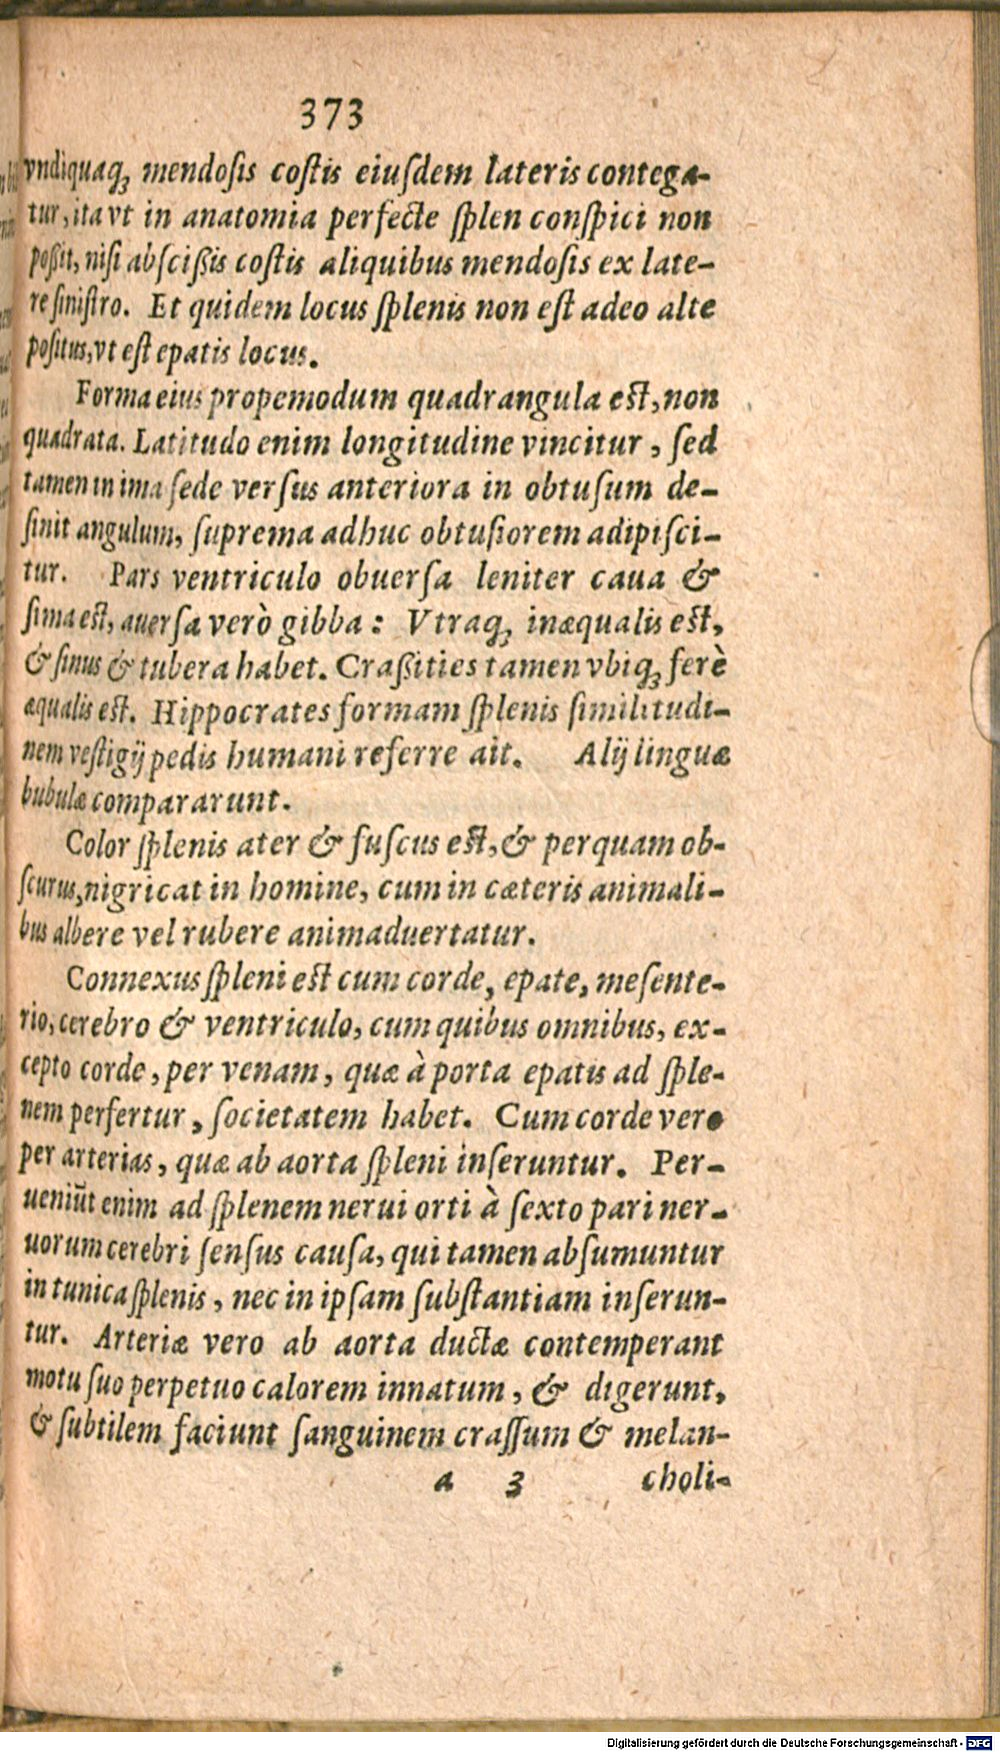 373
vndiquaq́; mendoſis coſtis eiuſdem lateris contega-
tur, ita vt in anatomia perfecte ſplen conſpici non
poßit, niſi abſcißis coſtis aliquibus mendoſis ex late-
re ſiniſtro. Et quidem locus ſplenis non eſt adeo alte
poſitus, vt eſt epatis locus.
Forma eius propemodum quadrangula eſt, non
quadrata. Latitudo enim longitudine vincitur, ſed
tamen in ima ſede verſus anteriora in obtuſum de-
ſinit angulum, ſuprema adhuc obtuſiorem adipiſci-
tur. Pars ventriculo obuerſa leniter caua &
ſima eſt, auerſa verò gibba: Vtraq; inæqualis eſt,
& ſinus & tubera habet. Craßities tamen vbiq; ferè
æqualis eſt. Hippocrates formam ſplenis ſimilitudi-
nem veſtigij pedis humani referre ait. Alij linguæ
bubulæ compararunt.
Color ſplenis ater & fuſcus eſt, & perquam ob-
ſcurus, nigricat in homine, cum in cæteris animali-
bus albere vel rubere animaduertatur.
Connexus ſpleni eſt cum corde, epate, meſente-
rio, cerebro & ventriculo, cum quibus omnibus, ex-
cepto corde, per venam, quæ à porta epatis ad ſple-
nem perfertur, ſocietatem habet. Cum corde vero
per arterias, quæ ab aorta ſpleni inſeruntur. Per-
ueniūt enim ad ſplenem nerui orti à ſexto pari ner-
uorum cerebri ſenſus cauſa, qui tamen abſumuntur
in tunica ſplenis, nec in ipſam ſubſtantiam inſerun-
tur. Arteriæ vero ab aorta ductæ contemperant
motu ſuo perpetuo calorem innatum, & digerunt,
& ſubtilem faciunt ſanguinem craſſum & melan-
a 3 choli-
Digitalisierung gefördert durch die Deutsche Forschungsgemeinschaft - DFG